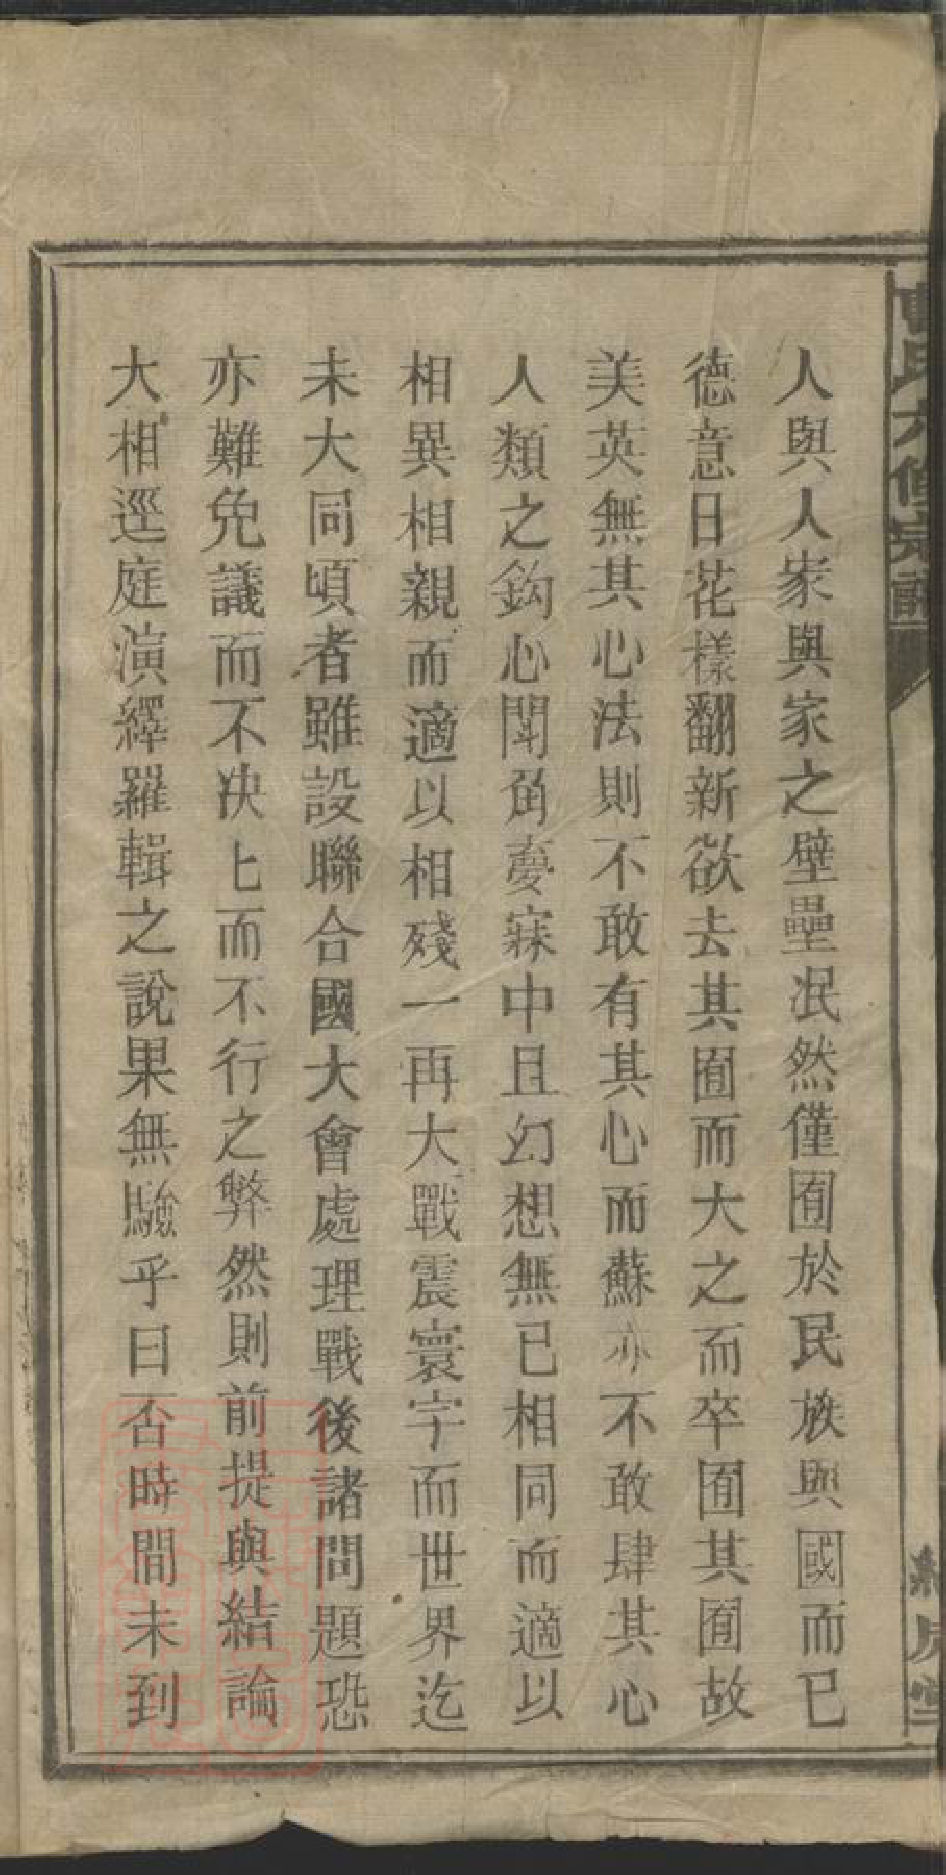 氏六修宗譜
人與人家與家之壁壘泯然僅囿於民族與國而已
德意日花樣翻新欲去其囿而大之而卒囿其囿故
美英無其心法則不敢有其心而蘇亦不敢肆其心
人類之鈎心鬭角夢寐中且幻想無已相同而適以
相異相親而適以相殘一再大戰震寰宇而世界迄
未大同頃者雖設聯合國大會處理戰後諸問題恐
亦難免議而不决上而不行之弊然則前提與結論
大相逕庭演繹羅輯之說果無驗乎曰否時間未到